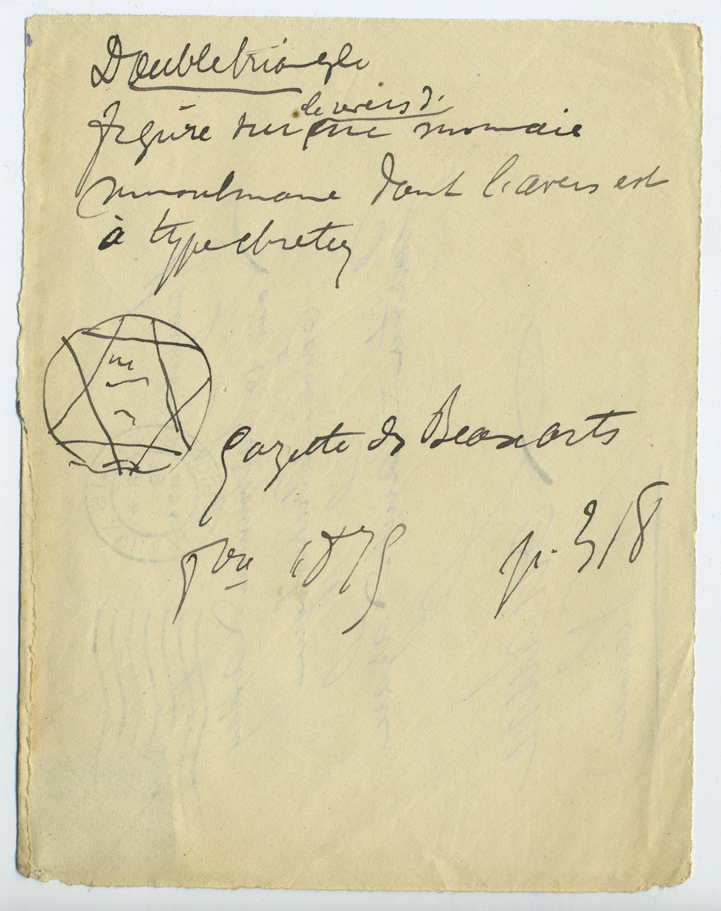 Double triangle
le revers d'
figure sur une monnaie
musulmane dont l'avers est
à type chretien
Gazette des Beaux arts
9bre 1875 p. 318